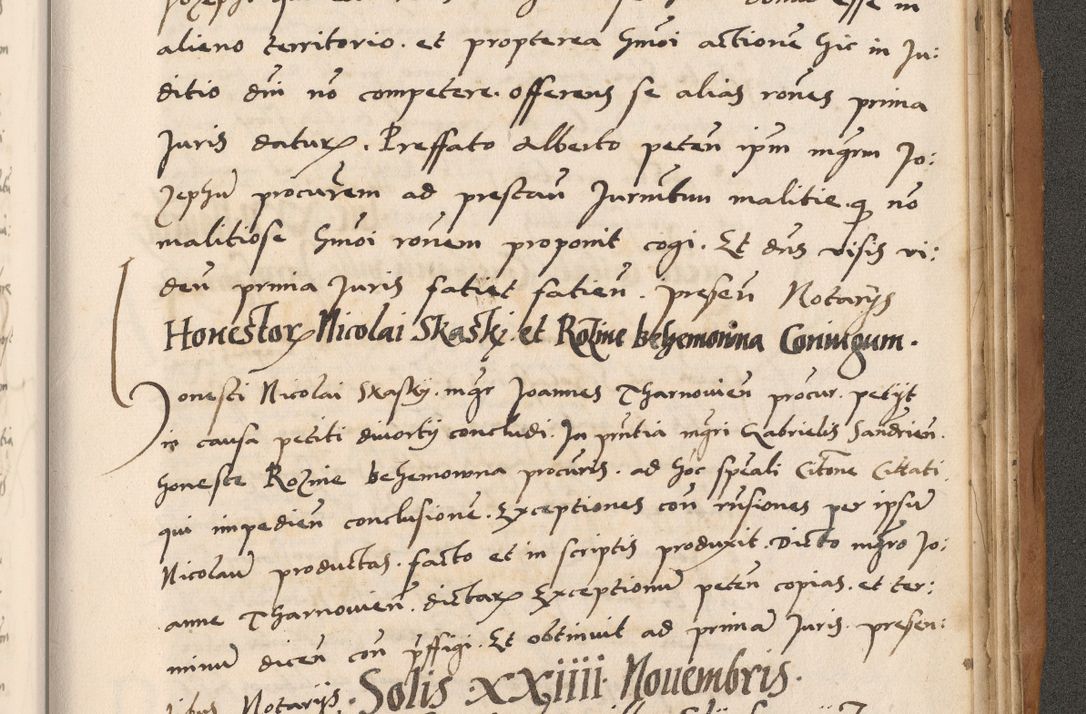 alieno territorio. et propterea hmoi actione hic in Ju:
ditio dni no competere. offerens se alias rones prima
Juris datur. Preffato Alberto peten ipm mgrm Jo:
zephu procurem ad prestan Jurmtum malitie q no
malitiose hmoi ronem proponit cogi. Et dns visis vi:
den prima Juris fatiet fatien. presen Notarijs
Honestor Nicolai Skaskj. et Rozine behemowna Coniugum.
Honesti Nicolai Skasky. mgr Joannes Tharnowien procur. petijt
in causa petiti diuortij concludi. In pntia mgri Gabrielis Sandzien.
honeste Rozinie behemowna procuris. ad hoc speali Citone Cittati
qui impedien conclusione. Exceptiones con rusiones per ipsum
Nicolau productas. facto et in scriptis produxit. Dicto mgro Jo:
anne Tharnowien. dictar Exceptionu peten copias. et ter:
minu dicen con pffigi. Et obtinuit ad prima Juris. presen:
tibus Notarijs. Solis XXiiii Nouembris.